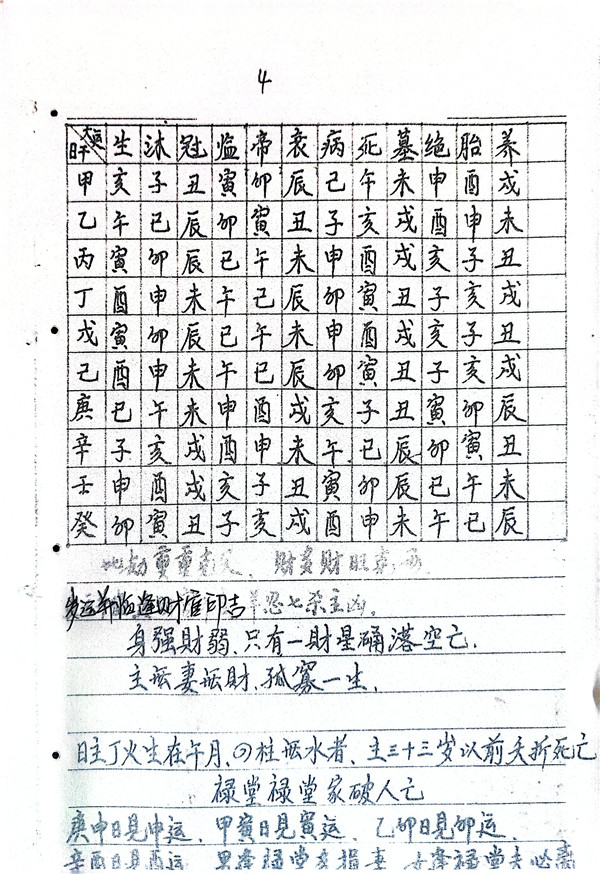 4
大运 日干 生 沐 冠 临 帝 衰 病 死 墓 绝 胎 养
甲 亥 子 丑 寅 卯 辰 己 午 未 申 酉 戌
乙 午 巳 辰 卯 寅 丑 子 亥 戌 酉 申 未
丙 寅 卯 辰 巳 午 未 申 酉 戌 亥 子 丑
丁 酉 申 未 午 己 辰 卯 寅 丑 子 亥 戌
戊 寅 卯 辰 巳 午 未 申 酉 戌 亥 子 丑
己 酉 申 未 午 巳 辰 卯 寅 丑 子 亥 戌
庚 巳 午 未 申 酉 戌 亥 子 丑 寅 卯 辰
辛 子 亥 戌 酉 申 未 午 巳 辰 卯 寅 丑
壬 申 酉 戌 亥 子 丑 寅 卯 辰 巳 午 未
癸 卯 寅 丑 子 亥 戌 酉 申 未 午 巳 辰
劫重重 财多财旺
岁运并临逢财官印吉 羊忍七杀主凶.
身强財弱.只有一財星确落空亡.
主坛妻坛財.孤寡一生.
日主丁火生在午月、四柱坛水者、主三十三岁以前夭折死亡
禄堂禄堂家破人亡
庚申日見申运、甲寅日見寅运、乙卯日見卯运、
辛酉日見酉运 男逢禄堂多损妻 女逢禄堂夫必